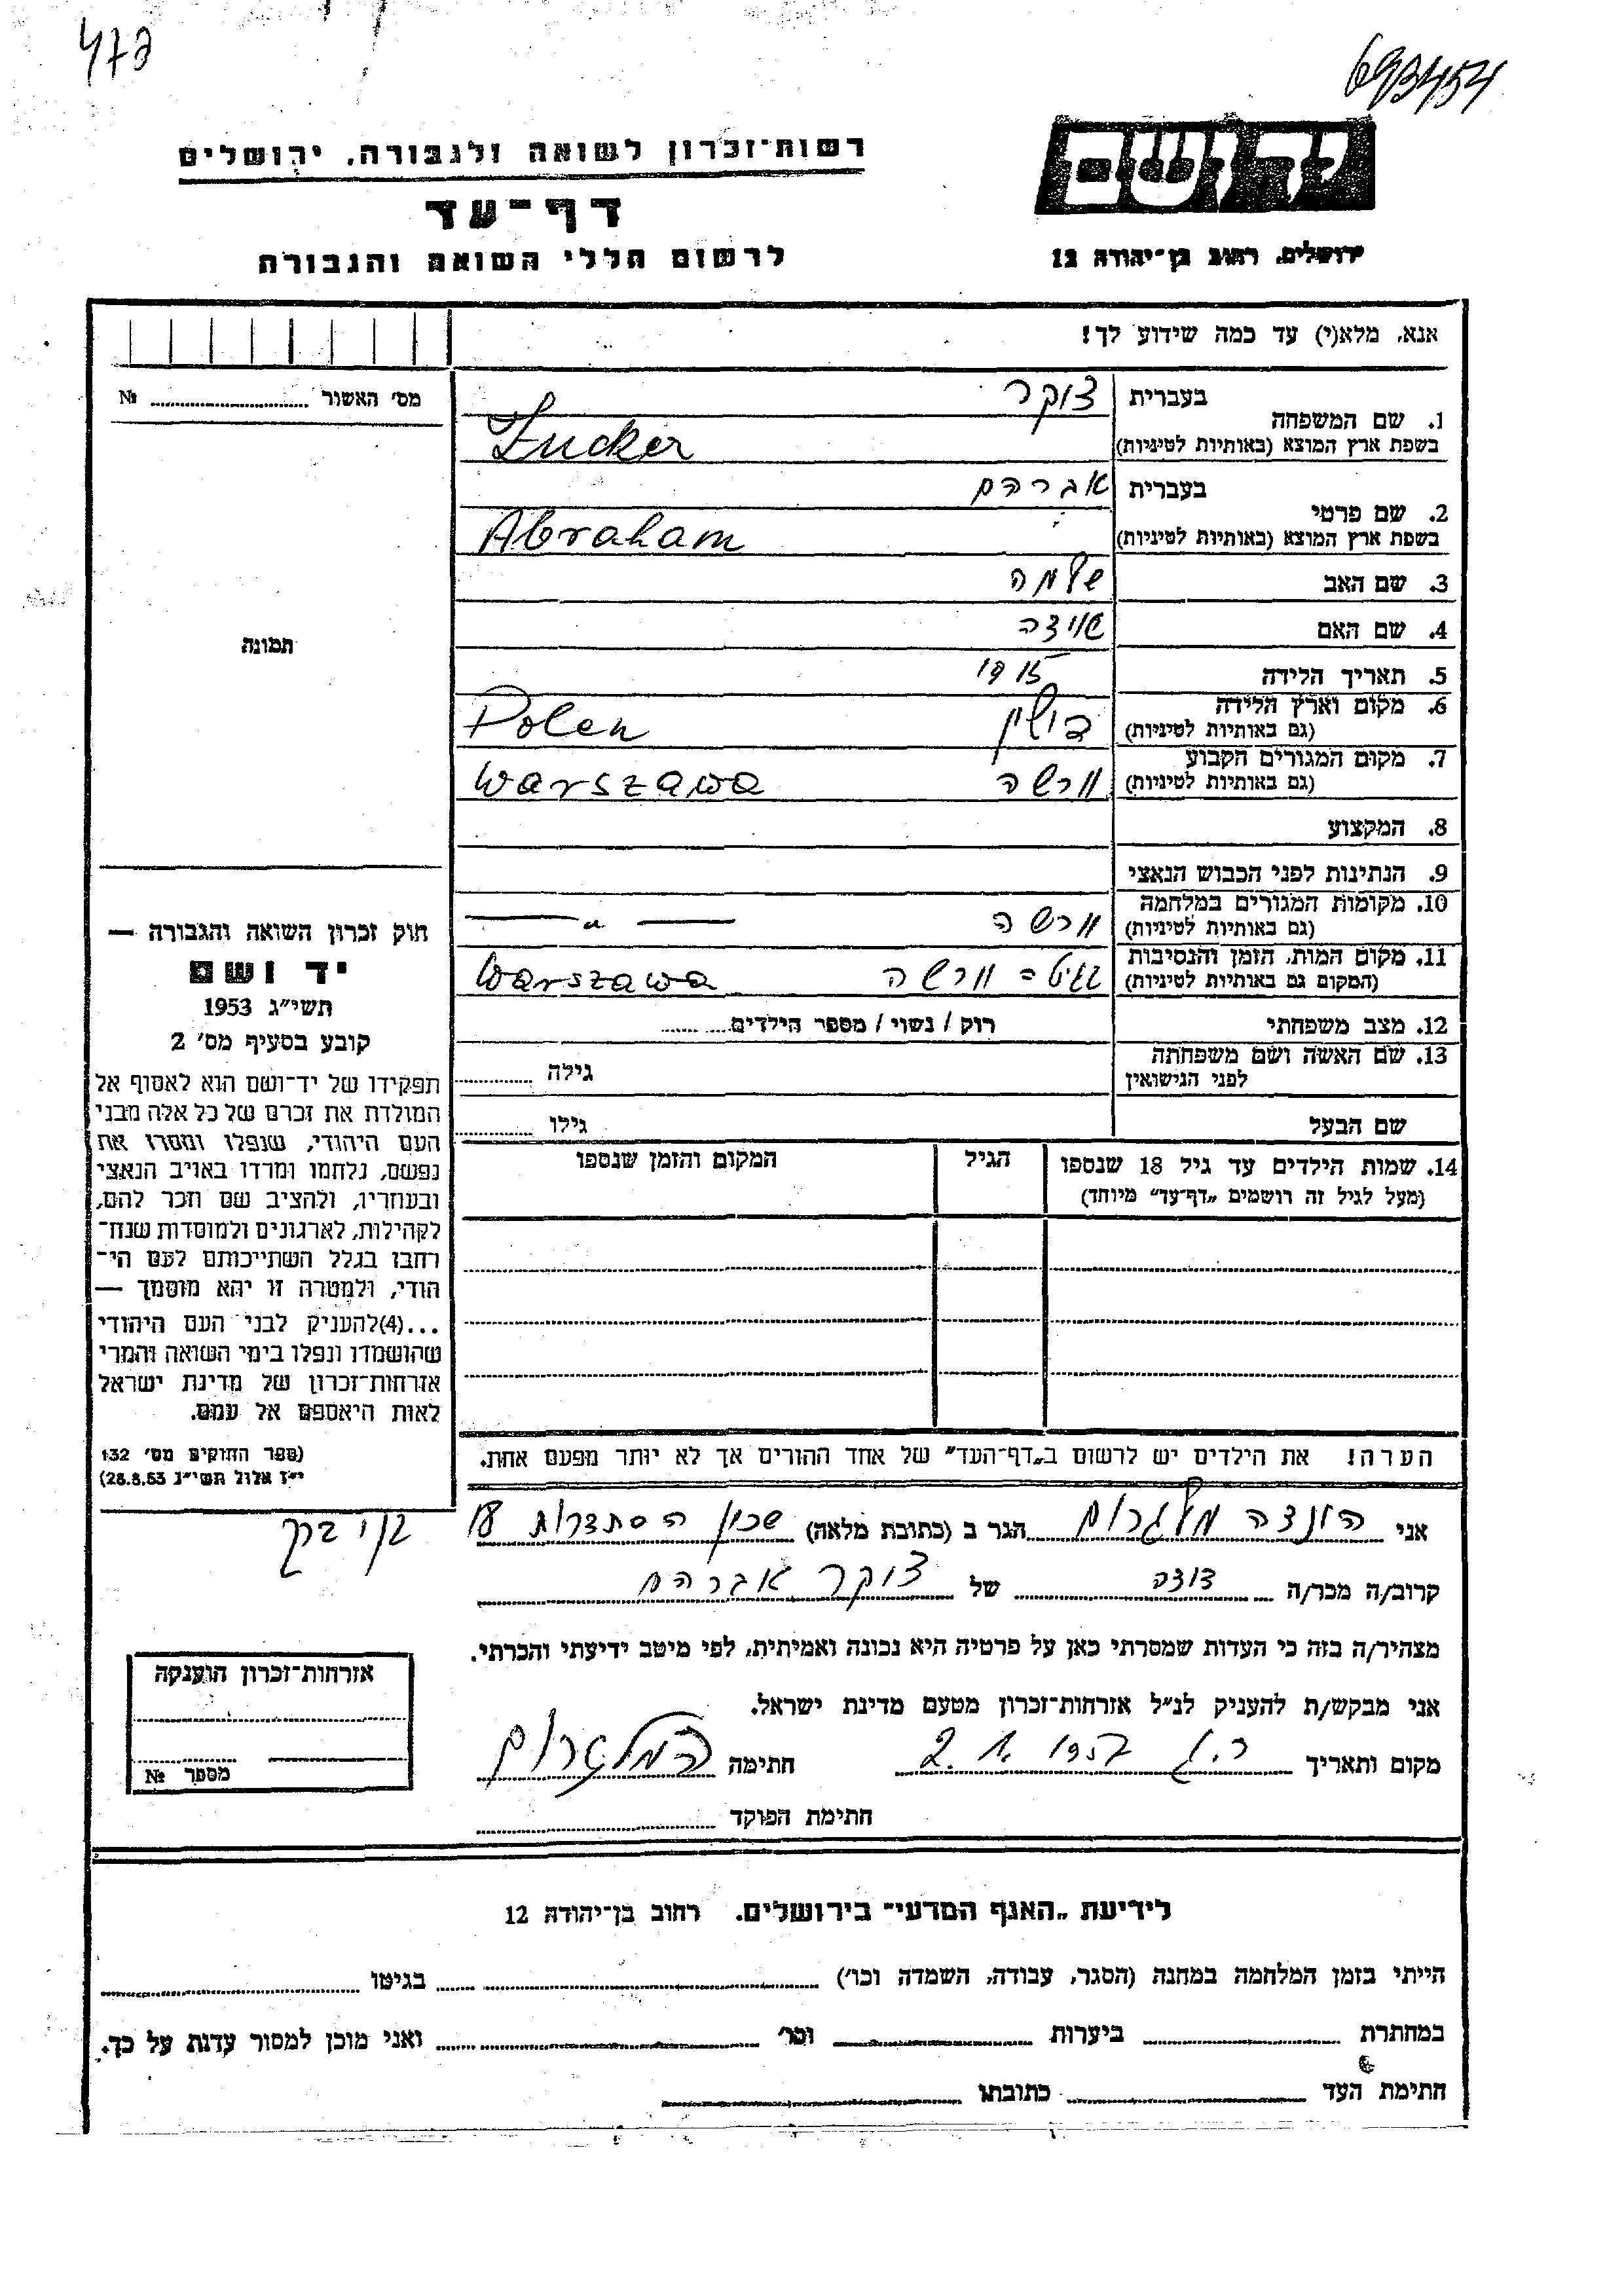 473
693454
יד ושם
ירושלים, רחוב בן־יהודה 12
רשות־זכרון לשואה ולגבורה, ירושלים
דף־עד
לרשום חללי השואה והגבורה
אנא, מלא(י) עד כמה שידוע לך!
מס׳ האשור № 
1. שם המשפחה
בעברית צוקר
בשפת ארץ המוצא (באותיות לטיניות) Zucker
2. שם פרטי
בעברית אברהם
בשפת ארץ המוצא (באותיות לטיניות) Abraham
3. שם האב שלמה
4. שם האם
5. תאריך הלידה 1915
6. מקום וארץ הלידה פולין Polen
(גם באותיות לטיניות)
7. מקום המגורים הקבוע וורשה Warszawa
(גם באותיות לטיניות)
8. המקצוע
9. הנתינות לפני הכבוש הנאצי
10. מקומות המגורים במלחמה וורשה — " —
(גם באותיות לטיניות)
11. מקום המות, הזמן והנסיבות גיטו - וורשה Warszawa
(המקום גם באותיות לטיניות)
12. מצב משפחתי רוק / נשוי / מספר הילדים
13. שם האשה ושם משפחתה
לפני הנישואין גילה
שם הבעל גילו
14. שמות הילדים עד גיל 18 שנספו הגיל המקום והזמן שנספו
(מעל לגיל זה רושמים „דף־עד״ מיוחד)
הערה! את הילדים יש לרשום ב„דף־העד״ של אחד ההורים אך לא יותר מפעם אחת.
תמונה
חוק זכרון השואה והגבורה —
יד ושם
תשי״ג 1953
קובע בסעיף מס׳ 2
תפקידו של יד־ושם הוא לאסוף אל
המולדת את זכרם של כל אלה מבני
העם היהודי, שנפלו ומסרו את
נפשם, נלחמו ומרדו באויב הנאצי
ובעוזריו, ולהציב שם וזכר להם,
לקהילות, לארגונים ולמוסדות שנח־
רבו בגלל השתייכותם לעם הי־
הודי, ולמטרה זו יהא מוסמך —
...(4)להעניק לבני העם היהודי
שהושמדו ונפלו בימי השואה והמרי
אזרחות־זכרון של מדינת ישראל
לאות היאספם אל עמם.
(ספר החוקים מס׳ 132
י״ז אלול תשי״ג 28.8.53)
אני הגר ב (כתובת מלאה) שכון הסתדרות 18 בני ברק
קרוב/ה מכר/ה דודה של צוקר אברהם
מצהיר/ה בזה כי העדות שמסרתי כאן על פרטיה היא נכונה ואמיתית, לפי מיטב ידיעתי והכרתי.
אני מבקש/ת להעניק לנ״ל אזרחות־זכרון מטעם מדינת ישראל.
מקום ותאריך 2. 1. 1957 חתימה
חתימת הפוקד
אזרחות־זכרון הוענקה
מספר №
לידיעת „האגף המדעי״ בירושלים. רחוב בן־יהודה 12
הייתי בזמן המלחמה במחנה (הסגר, עבודה, השמדה וכו׳) בגיטו
במחתרת ביערות וכו׳ ואני מוכן למסור עדות על כך.
חתימת העד כתובתו